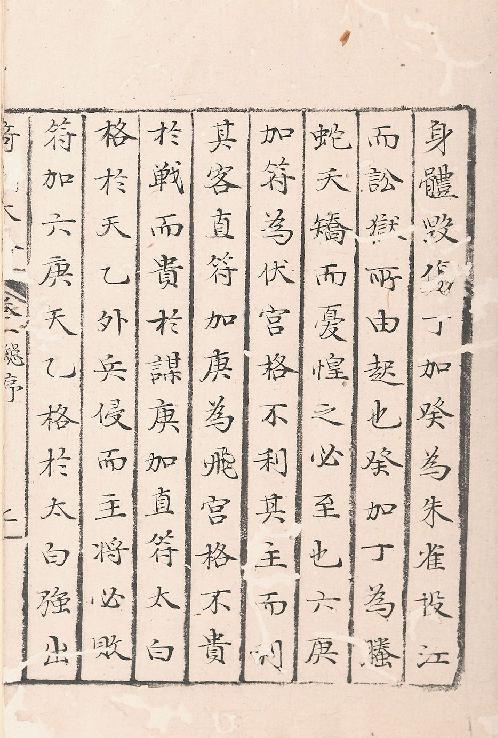 身體毀傷丁加癸為朱雀投江
而訟獄所由起也癸加丁為螣
蛇夭矯而憂惶之必至也六庚
加符為伏宮格不利其主而利
其客直符加庚為飛宮格不貴
於戰而貴於謀庚加直符太白
格於天乙外兵侵而主將必敗
符加六庚天乙格於太白強出
卷一總序